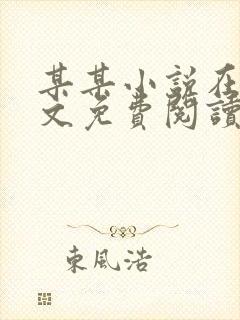 某某小說在
文免費閱讀
東風浩